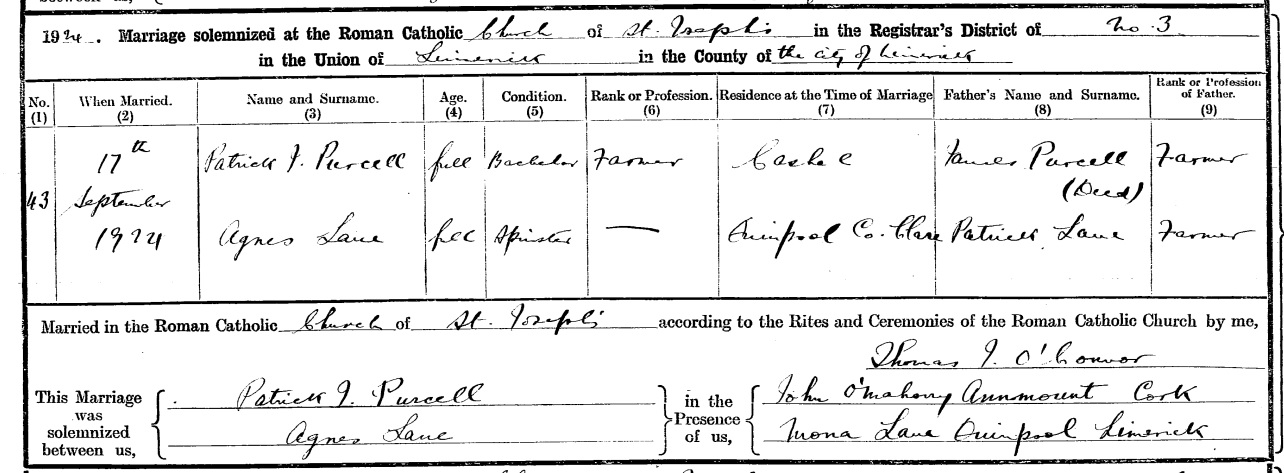 1924. Marriage solemnized at the Roman Catholic Church of St. Joseph's in the Registrar's District of No. 3
in the Union of Limerick in the County of the city of Limerick
No. (1) When Married. (2) Name and Surname. (3) Age. (4) Condition. (5) Rank or Profession. (6) Residence at the Time of Marriage (7) Father's Name and Surname. (8) Rank or Profession of Father. (9)
17th Patrick J. Purcell full Bachelor Farmer Cashel James Purcell Farmer
43 September (Decd)
1924 Agnes Lane full Spinster — Quinpool Co. Clare Patrick Lane Farmer
Married in the Roman Catholic Church of St. Joseph's according to the Rites and Ceremonies of the Roman Catholic Church by me,
Thomas J. O'Connor
This Marriage was solemnized between us,
Patrick J. Purcell
Agnes Lane
in the Presence of us,
John O'Mahony Annmount Cork
Mona Lane Quinpool Limerick